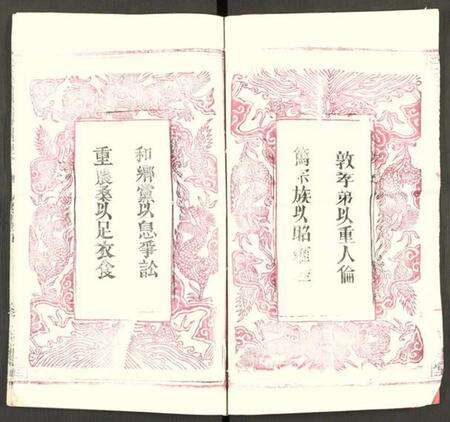 敦孝弟以重人倫
篤宗族以昭雍
和鄉黨以息爭訟
重農桑以足衣食